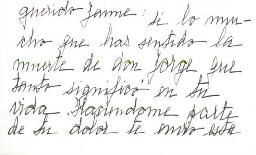 querido Jaime: sé lo mu-
cho que has sentido la
muerte de don Jorge que
tanto significó en tu
vida. Haciéndome parte
de tu dolor te envío este